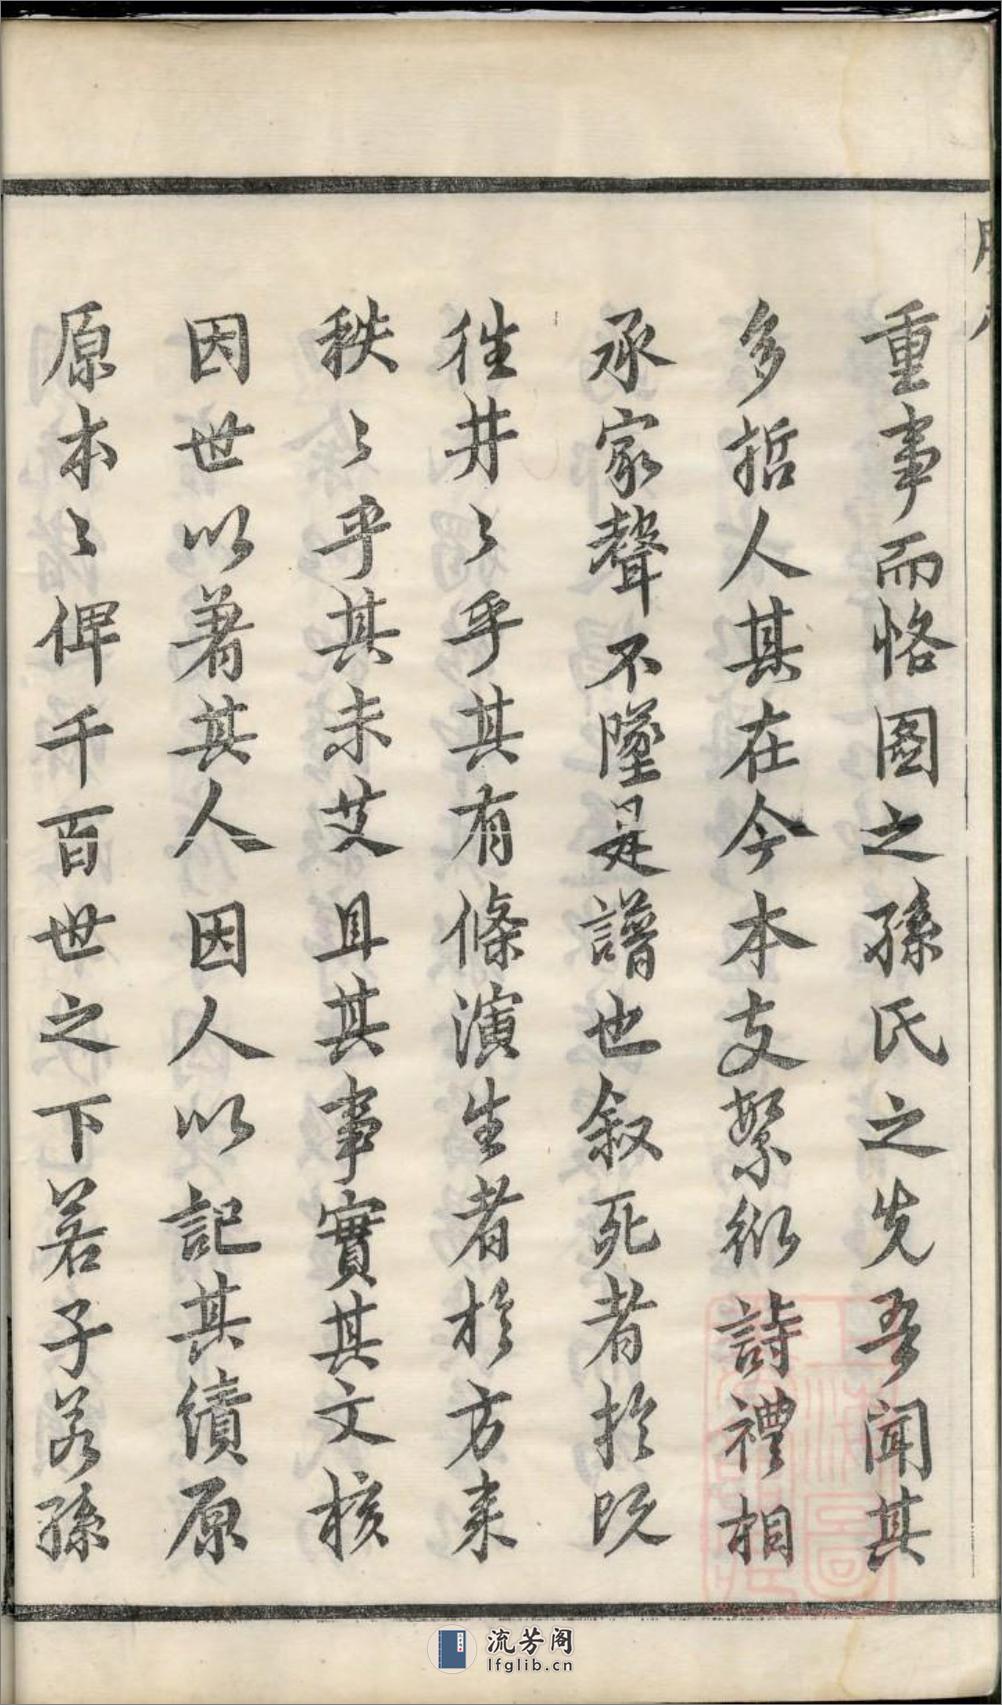 重事而恪圖之孫氏之先吾聞其
多哲人其在今本支繁衍詩禮相
承家聲不墜是譜也叙死者於既
往井〻乎其有條演生者於方来
秩〻乎其未艾且其事實其文核
因世以著其人因人以記其績原
原本〻俾千百世之下若子若孫
流芳阁
lfglib.cn